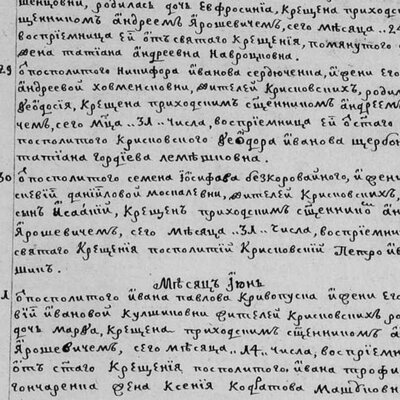 шенцовни, родилась дочь Евфросинія, Крещена приходс
щенникомъ андреемъ Ярошевичемъ, сего мѣсяца ..24
воспріемница ей ѿ святаго Крещенія, помянутого
жена татіана андреевна Навроцковна.
29 ѽ посполитого Никифора иванова сердюченка, и жени его
андреевой ховменсковни, жителей Крисковскихъ, роди
Феодосія, Крещена приходскимъ сщенникомъ андреем
чемъ, сего мца ..31.. числа, воспріемница ей ѿ стаго
посполитого Крисковского Феодора иванова щербо
татіана гордіева лемешковна.
30 ѽ посполитого семена іосифова безкоровайного, и жени
данійловой москалевни, жителей Крисковскихъ,
сынъ Исаакій, Крещенъ приходскимъ сщенникомъ ан
Ярошевичемъ, сего мѣсяца ..31.. числа, воспріемник
святаго Крещенія посполитій Крисковскій Петро ив
шинъ.
Мѣсяцъ Іюнь
1 ѽ посполитого ивана павлова Кривопуска и жени его
вій ивановой Кулшиковни жителей Крисковскихъ ро
дочъ марѳа, Крещена приходскимъ сщенникомъ а
Ярошевичемъ, сего мѣсяца ..14.. числа, воспріем
ѿ стаго Крещенія посполитого ивана трофи
гончаренка жена Ксенія Кодратова